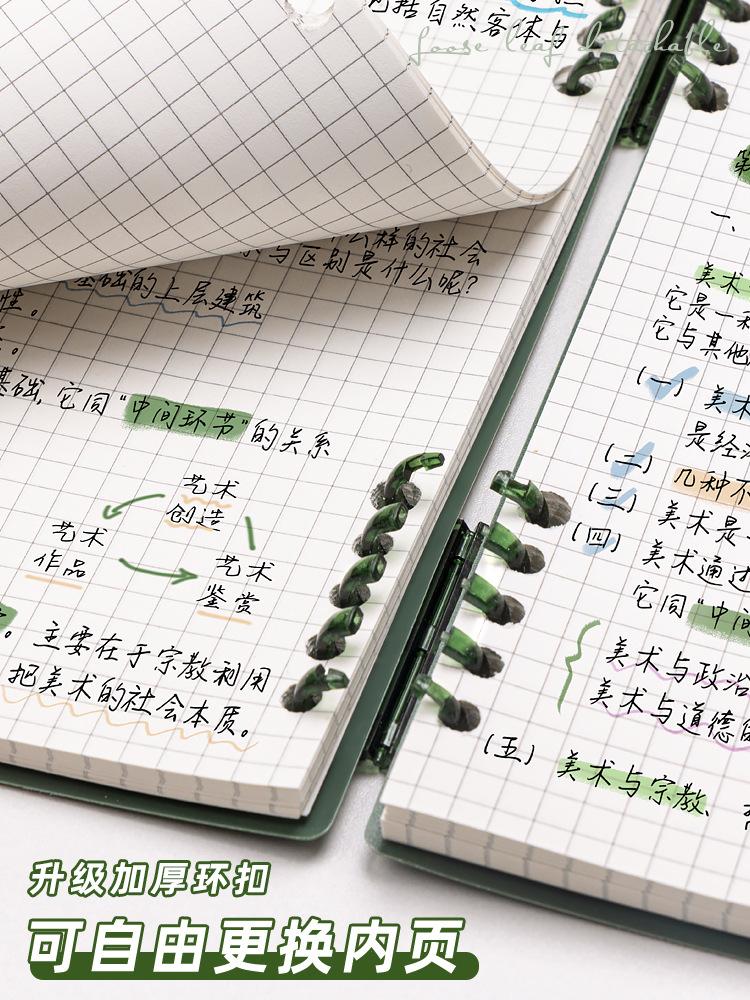 包括自然客体与
Loose leaf detachable
什么样的社会
系与区别是什么呢?
基础的上层建筑
性。
基础,它同“中间环节”的关系
艺术
创造
艺术
作品
艺术
鉴赏
主要在于宗教利用
把美术的社会本质。
一、
美术
它是一种
它与其他
(一) 美术
是经济
(二) 几种不
(三) 美术是一
(四) 美术通过
它同“中间
美术与政治
美术与道德的
(五) 美术与宗教、
升级加厚环扣
可自由更换内页